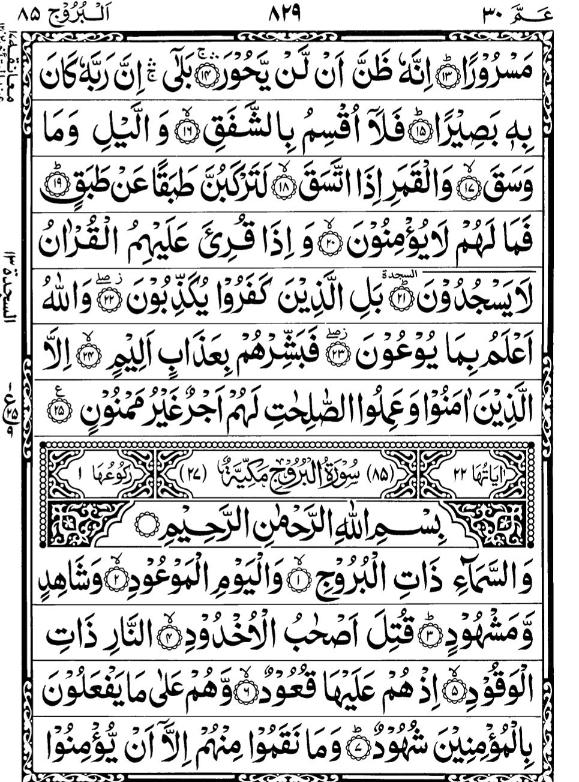 عَمَّ ۳۰ ۸۲۹ اَلْبُرُوْج ۸۵
مَسْرُوْرًا ۟ؕ‏﴿۱۳﴾ اِنَّهٗ ظَنَّ اَنْ لَّنْ يَّحُوْرَ ۛۚ‏﴿۱۴﴾ بَلٰٓى ۛۚ اِنَّ رَبَّهٗ كَانَ
بِهٖ بَصِيْرًا ؕ‏﴿۱۵﴾ فَلَآ اُقْسِمُ بِالشَّفَقِ ۙ‏﴿۱۶﴾ وَالَّيْلِ وَمَا
وَسَقَ ۙ‏﴿۱۷﴾ وَالْقَمَرِ اِذَا اتَّسَقَ ۙ‏﴿۱۸﴾ لَتَرْكَبُنَّ طَبَقًا عَنْ طَبَقٍ ؕ‏﴿۱۹﴾
فَمَا لَهُمْ لَا يُؤْمِنُوْنَ ۙ‏﴿۲۰﴾ وَاِذَا قُرِئَ عَلَيْهِمُ الْقُرْاٰنُ
لَا يَسْجُدُوْنَ ؕ‏﴿۲۱﴾ السجدة بَلِ الَّذِيْنَ كَفَرُوْا يُكَذِّبُوْنَ ۖ‏﴿۲۲﴾ وَاللّٰهُ
اَعْلَمُ بِمَا يُوْعُوْنَ ۖ‏﴿۲۳﴾ فَبَشِّرْهُمْ بِعَذَابٍ اَلِيْمٍ ۙ‏﴿۲۴﴾ اِلَّا
الَّذِيْنَ اٰمَنُوْا وَعَمِلُوا الصّٰلِحٰتِ لَهُمْ اَجْرٌ غَيْرُ مَمْنُوْنٍ ﴿۲۵﴾ ع
اٰيَاتُهَا ۲۲ (۸۵) سُوْرَةُ الْبُرُوْجِ مَكِّيَّةٌ (۲۷) رُكُوْعُهَا ۱
بِسْمِ اللّٰهِ الرَّحْمٰنِ الرَّحِيْمِ
وَالسَّمَآءِ ذَاتِ الْبُرُوْجِ ۙ‏﴿۱﴾ وَالْيَوْمِ الْمَوْعُوْدِ ۙ‏﴿۲﴾ وَشَاهِدٍ
وَّمَشْهُوْدٍ ؕ‏﴿۳﴾ قُتِلَ اَصْحٰبُ الْاُخْدُوْدِ ۙ‏﴿۴﴾ النَّارِ ذَاتِ
الْوَقُوْدِ ۙ‏﴿۵﴾ اِذْ هُمْ عَلَيْهَا قُعُوْدٌ ۙ‏﴿۶﴾ وَّهُمْ عَلٰى مَا يَفْعَلُوْنَ
بِالْمُؤْمِنِيْنَ شُهُوْدٌ ؕ‏﴿۷﴾ وَمَا نَقَمُوْا مِنْهُمْ اِلَّآ اَنْ يُّؤْمِنُوْا
السجدة ۱۳